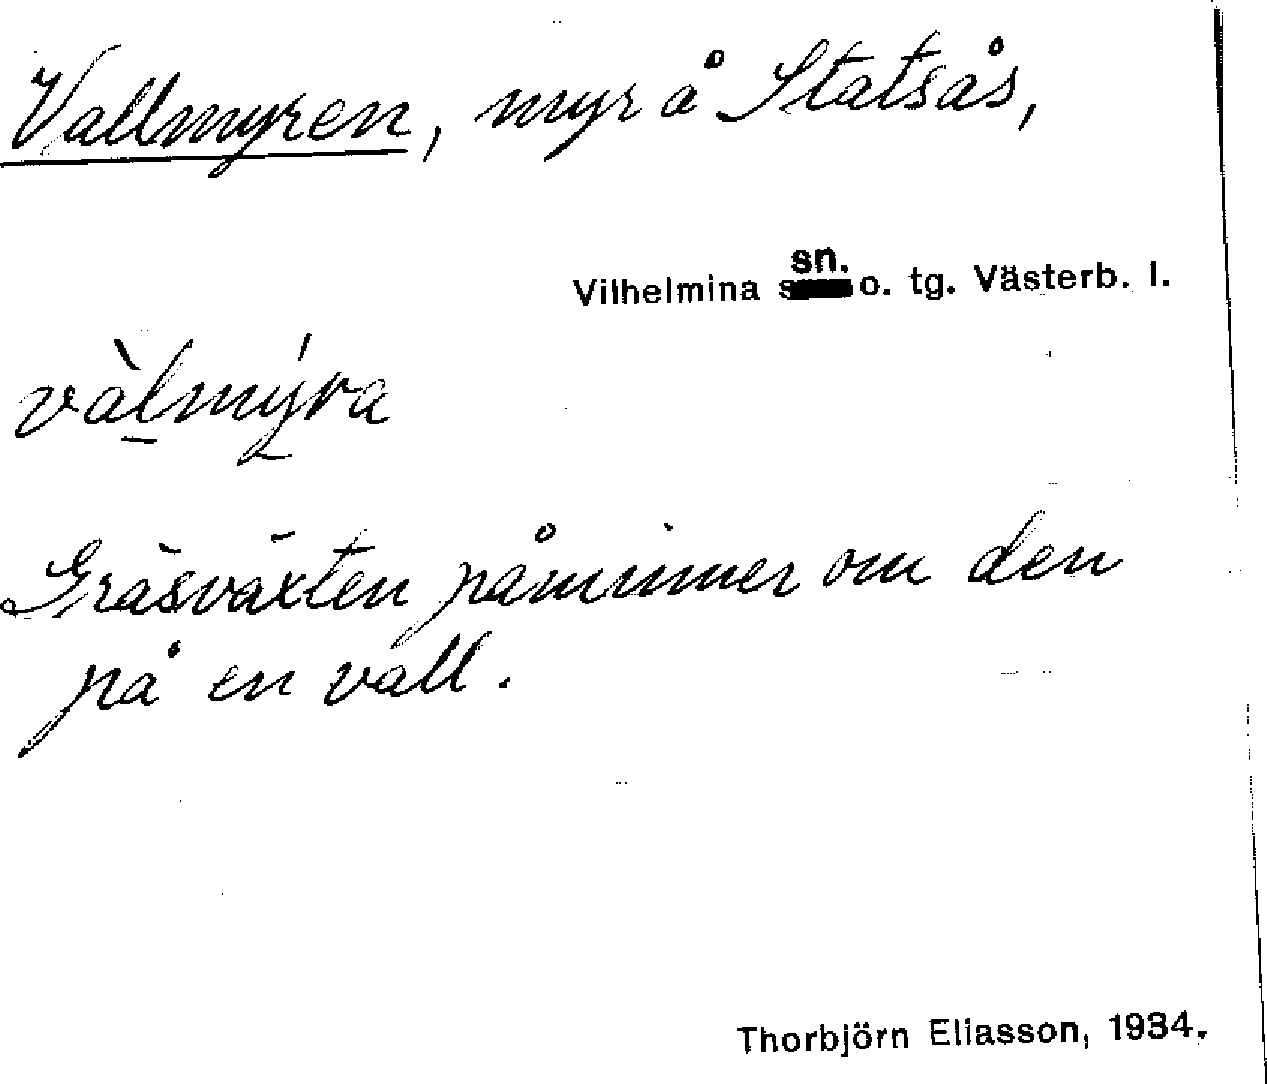 Vallmyren, myr å Statsås,
Vilhelmina sn. o. tg. Västerb. l.
vàlmýra
Gräsväxten påminner om den
på en vall.
Thorbjörn Eliasson, 1934.